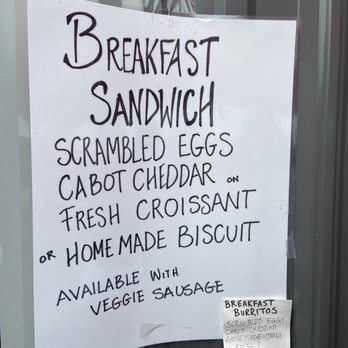 BREAKFAST
SANDWICH
SCRAMBLED EGGS
CABOT CHEDDAR ON
FRESH CROISSANT
OR HOMEMADE BISCUIT
AVAILABLE WITH
VEGGIE SAUSAGE
BREAKFAST
BURRITOS
SCRAMBLED EGGS
CABOT CHEDDAR
HOMEMADE CHILI